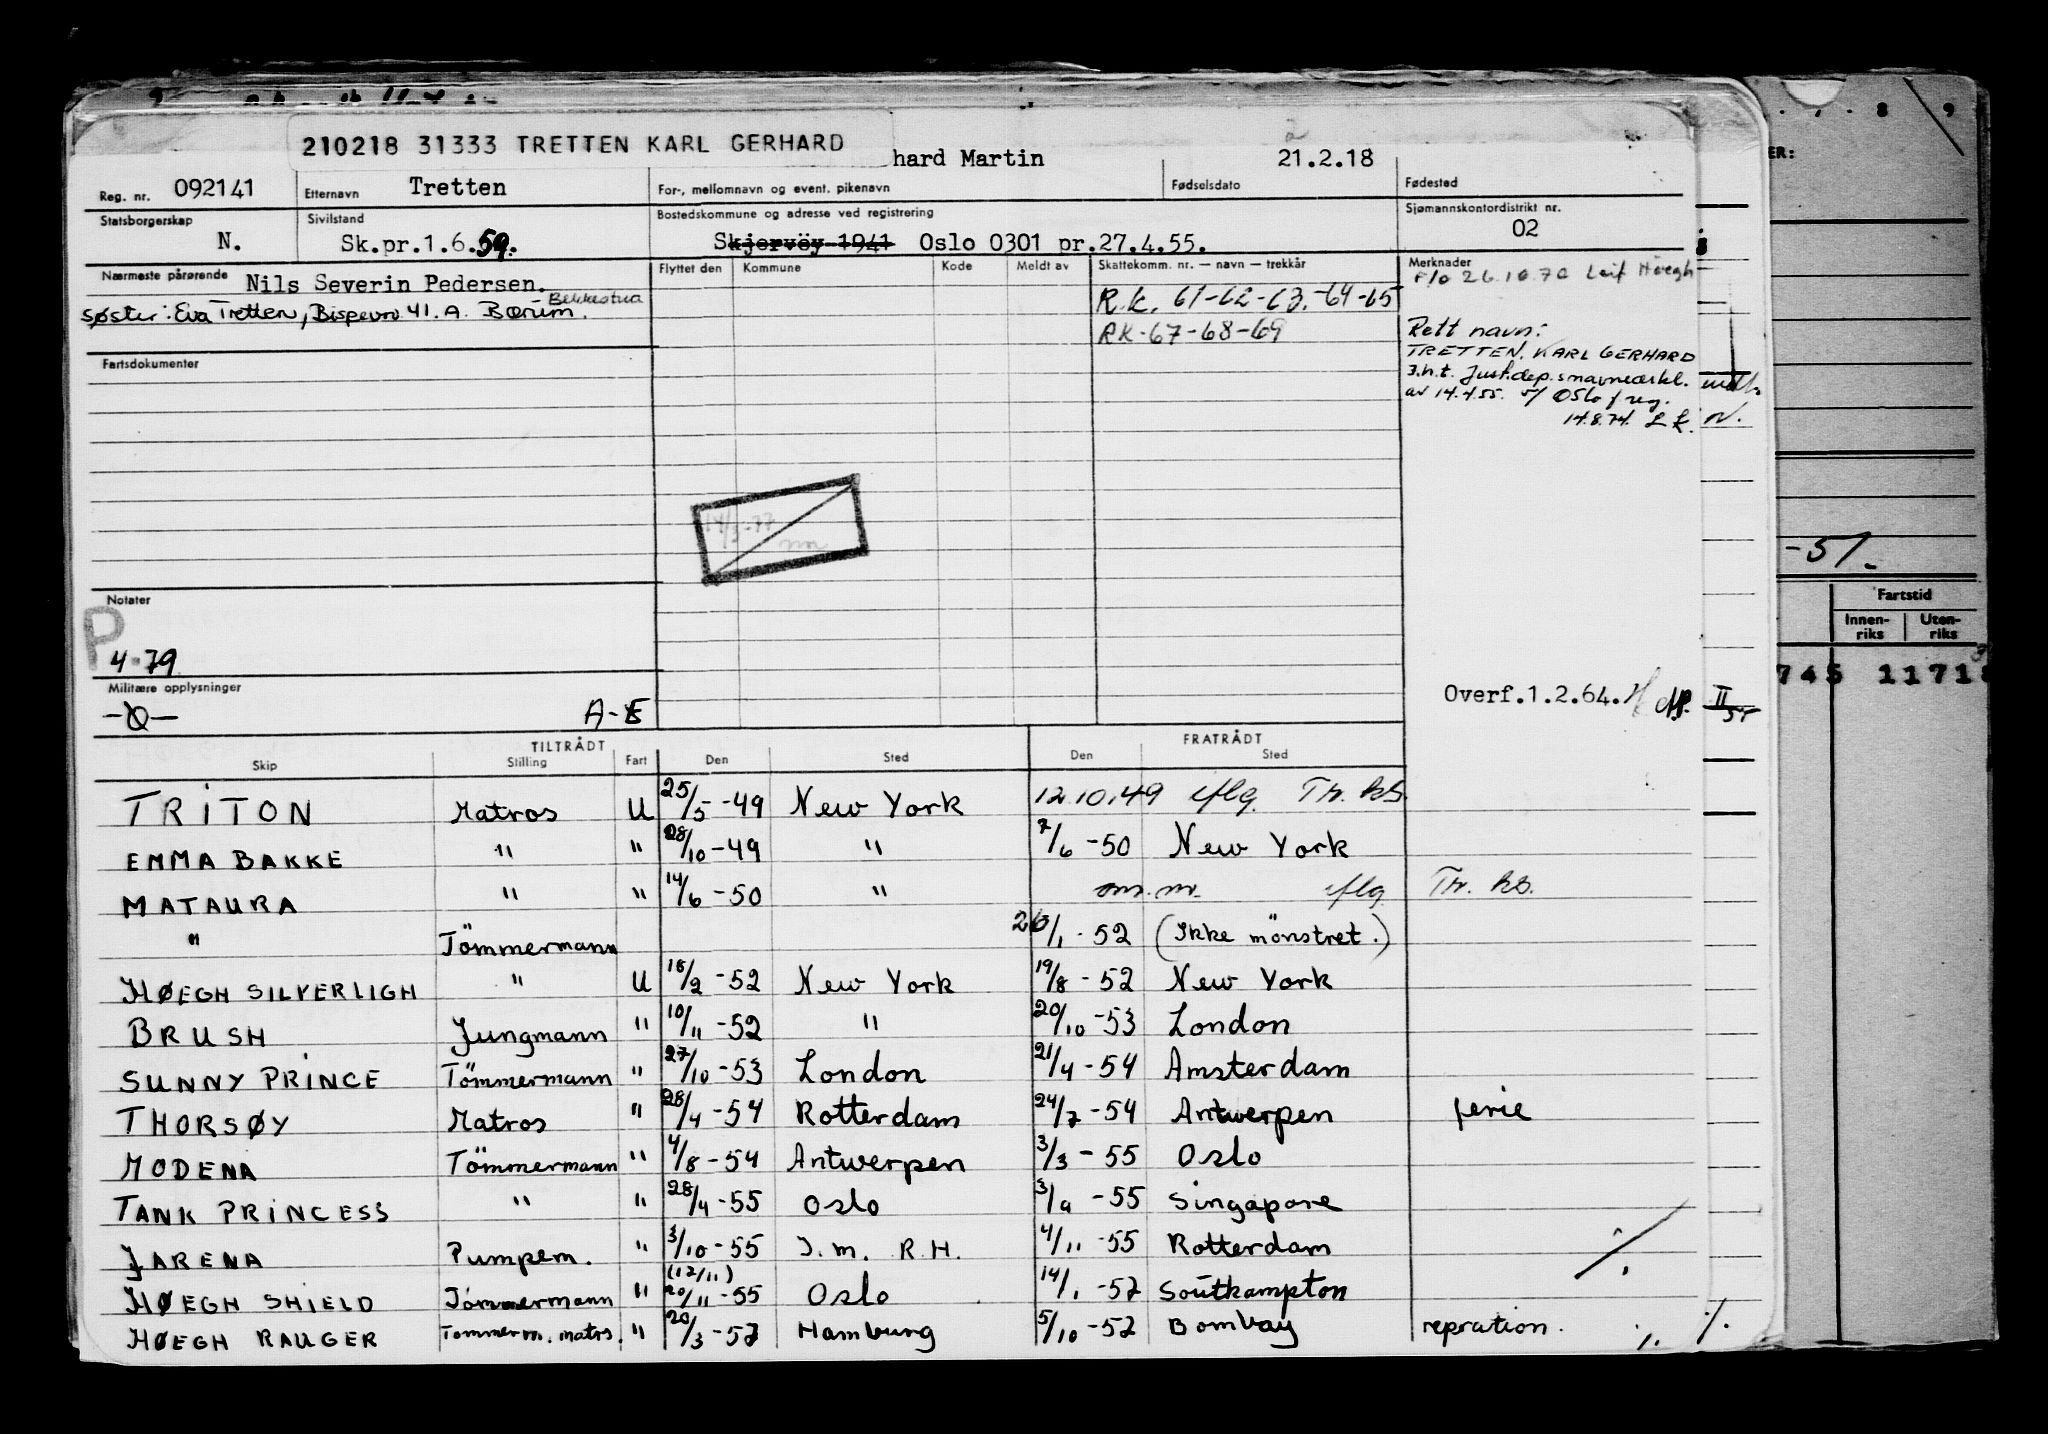 210218 31333 TRETTEN KARL GERHARD
hard Martin 21.2.18
Reg. nr. 092141 Etternavn Tretten For-, mellomnavn og event. pikenavn Fødselsdato Fødested
Statsborgerskap N. Sivilstand Sk.pr.1.6.59. Bostedskommune og adresse ved registrering Skjervøy 1941 Oslo 0301 pr.27.4.55. Sjømannskontordistrikt nr. 02
Nærmeste pårørende Nils Severin Pedersen. Flyttet den Kommune Kode Meldt av Skattekomm. nr. — navn — trekkår Merknader
F/o 26.10.70 Leif Höegh
Bekkestua
søster: Eva Tretten, Bispevn 41. A. Bærum.
R.k. 61-62-63.-64-65
RK-67-68-69
Rett navn:
TRETTEN, KARL GERHARD
J.h.t. Just.dep.s navneerkl.
av 14.4.55. s/ Oslo f reg.
14.8.74. L k.
Fartsdokumenter
14/3-77
Notater
P
4-79
Militære opplysninger
A-E
Overf.1.2.64.
II
ER:
8 9
-51.
Fartstid
Innen-riks Uten-riks
745 11718
TILTRÅDT FRATRÅDT
Skip Stilling Fart Den Sted Den Sted
TRITON Matros U 25/5-49 New York 12.10.49 iflg. Tr. ks.
EMMA BAKKE " " 28/10-49 " 7/6-50 New York
MATAURA " " 14/6-50 " iflg Tr. ks.
" Tömmermann 26/1-52 (Ikke mönstret.)
HØEGH SILVERLIGH " U 15/2-52 New York 19/8-52 New York
BRUSH Jungmann " 10/11-52 " 20/10-53 London
SUNNY PRINCE Tömmermann " 27/10-53 London 21/4-54 Amsterdam
THORSØY Matros " 28/4-54 Rotterdam 24/7-54 Antwerpen ferie
MODENA Tömmermann " 4/8-54 Antwerpen 3/3-55 Oslo
TANK PRINCESS " " 28/4-55 Oslo 3/9-55 Singapore
JARENA Pumpem. " 3/10-55 I.m. R.H. 4/11-55 Rotterdam
(12/11)
HØEGH SHIELD Tömmermann " 20/11-55 Oslo 14/1-57 Southampton
HØEGH RAUGER Tommerm. matrs. " 20/3-57 Hamburg 5/10-57 Bombay repration.